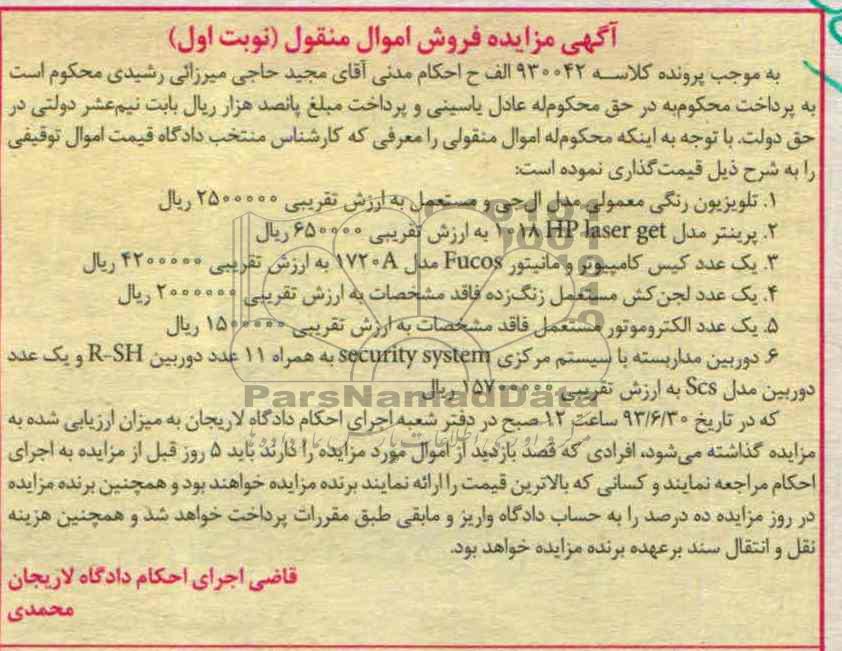 آگهی مزایده فروش اموال منقول (نوبت اول)
به موجب پرونده کلاسه ۹۳۰۰۴۲ الف ح احکام مدنی آقای مجید حاجی میرزائی رشیدی محکوم است
به پرداخت محکوم‌به در حق محکوم‌له عادل یاسینی و پرداخت مبلغ پانصد هزار ریال بابت نیم‌عشر دولتی در
حق دولت. با توجه به اینکه محکوم‌له اموال منقولی را معرفی که کارشناس منتخب دادگاه قیمت اموال توقیفی
را به شرح ذیل قیمت‌گذاری نموده است:
۱. تلویزیون رنگی معمولی مدل ال‌جی و مستعمل به ارزش تقریبی ۲۵۰۰۰۰۰ ریال
۲. پرینتر مدل HP laser get ۱۰۱۸ به ارزش تقریبی ۶۵۰۰۰۰ ریال
۳. یک عدد کیس کامپیوتر و مانیتور Fucos مدل ۱۷۲۰A به ارزش تقریبی ۴۲۰۰۰۰۰ ریال
۴. یک عدد لجن‌کش مستعمل زنگ‌زده فاقد مشخصات به ارزش تقریبی ۲۰۰۰۰۰۰ ریال
۵. یک عدد الکتروموتور مستعمل فاقد مشخصات به ارزش تقریبی ۱۵۰۰۰۰۰ ریال
۶. دوربین مداربسته با سیستم مرکزی security system به همراه ۱۱ عدد دوربین R-SH و یک عدد
دوربین مدل Scs به ارزش تقریبی ۱۵۷۰۰۰۰۰ ریال
ParsNamadData
که در تاریخ ۹۳/۶/۳۰ ساعت ۱۲ صبح در دفتر شعبه اجرای احکام دادگاه لاریجان به میزان ارزیابی شده به
مزایده گذاشته می‌شود، افرادی که قصد بازدید از اموال مورد مزایده را دارند باید ۵ روز قبل از مزایده به اجرای
احکام مراجعه نمایند و کسانی که بالاترین قیمت را ارائه نمایند برنده مزایده خواهند بود و همچنین برنده مزایده
در روز مزایده ده درصد را به حساب دادگاه واریز و مابقی طبق مقررات پرداخت خواهد شد و همچنین هزینه
نقل و انتقال سند برعهده برنده مزایده خواهد بود.
قاضی اجرای احکام دادگاه لاریجان
محمدی